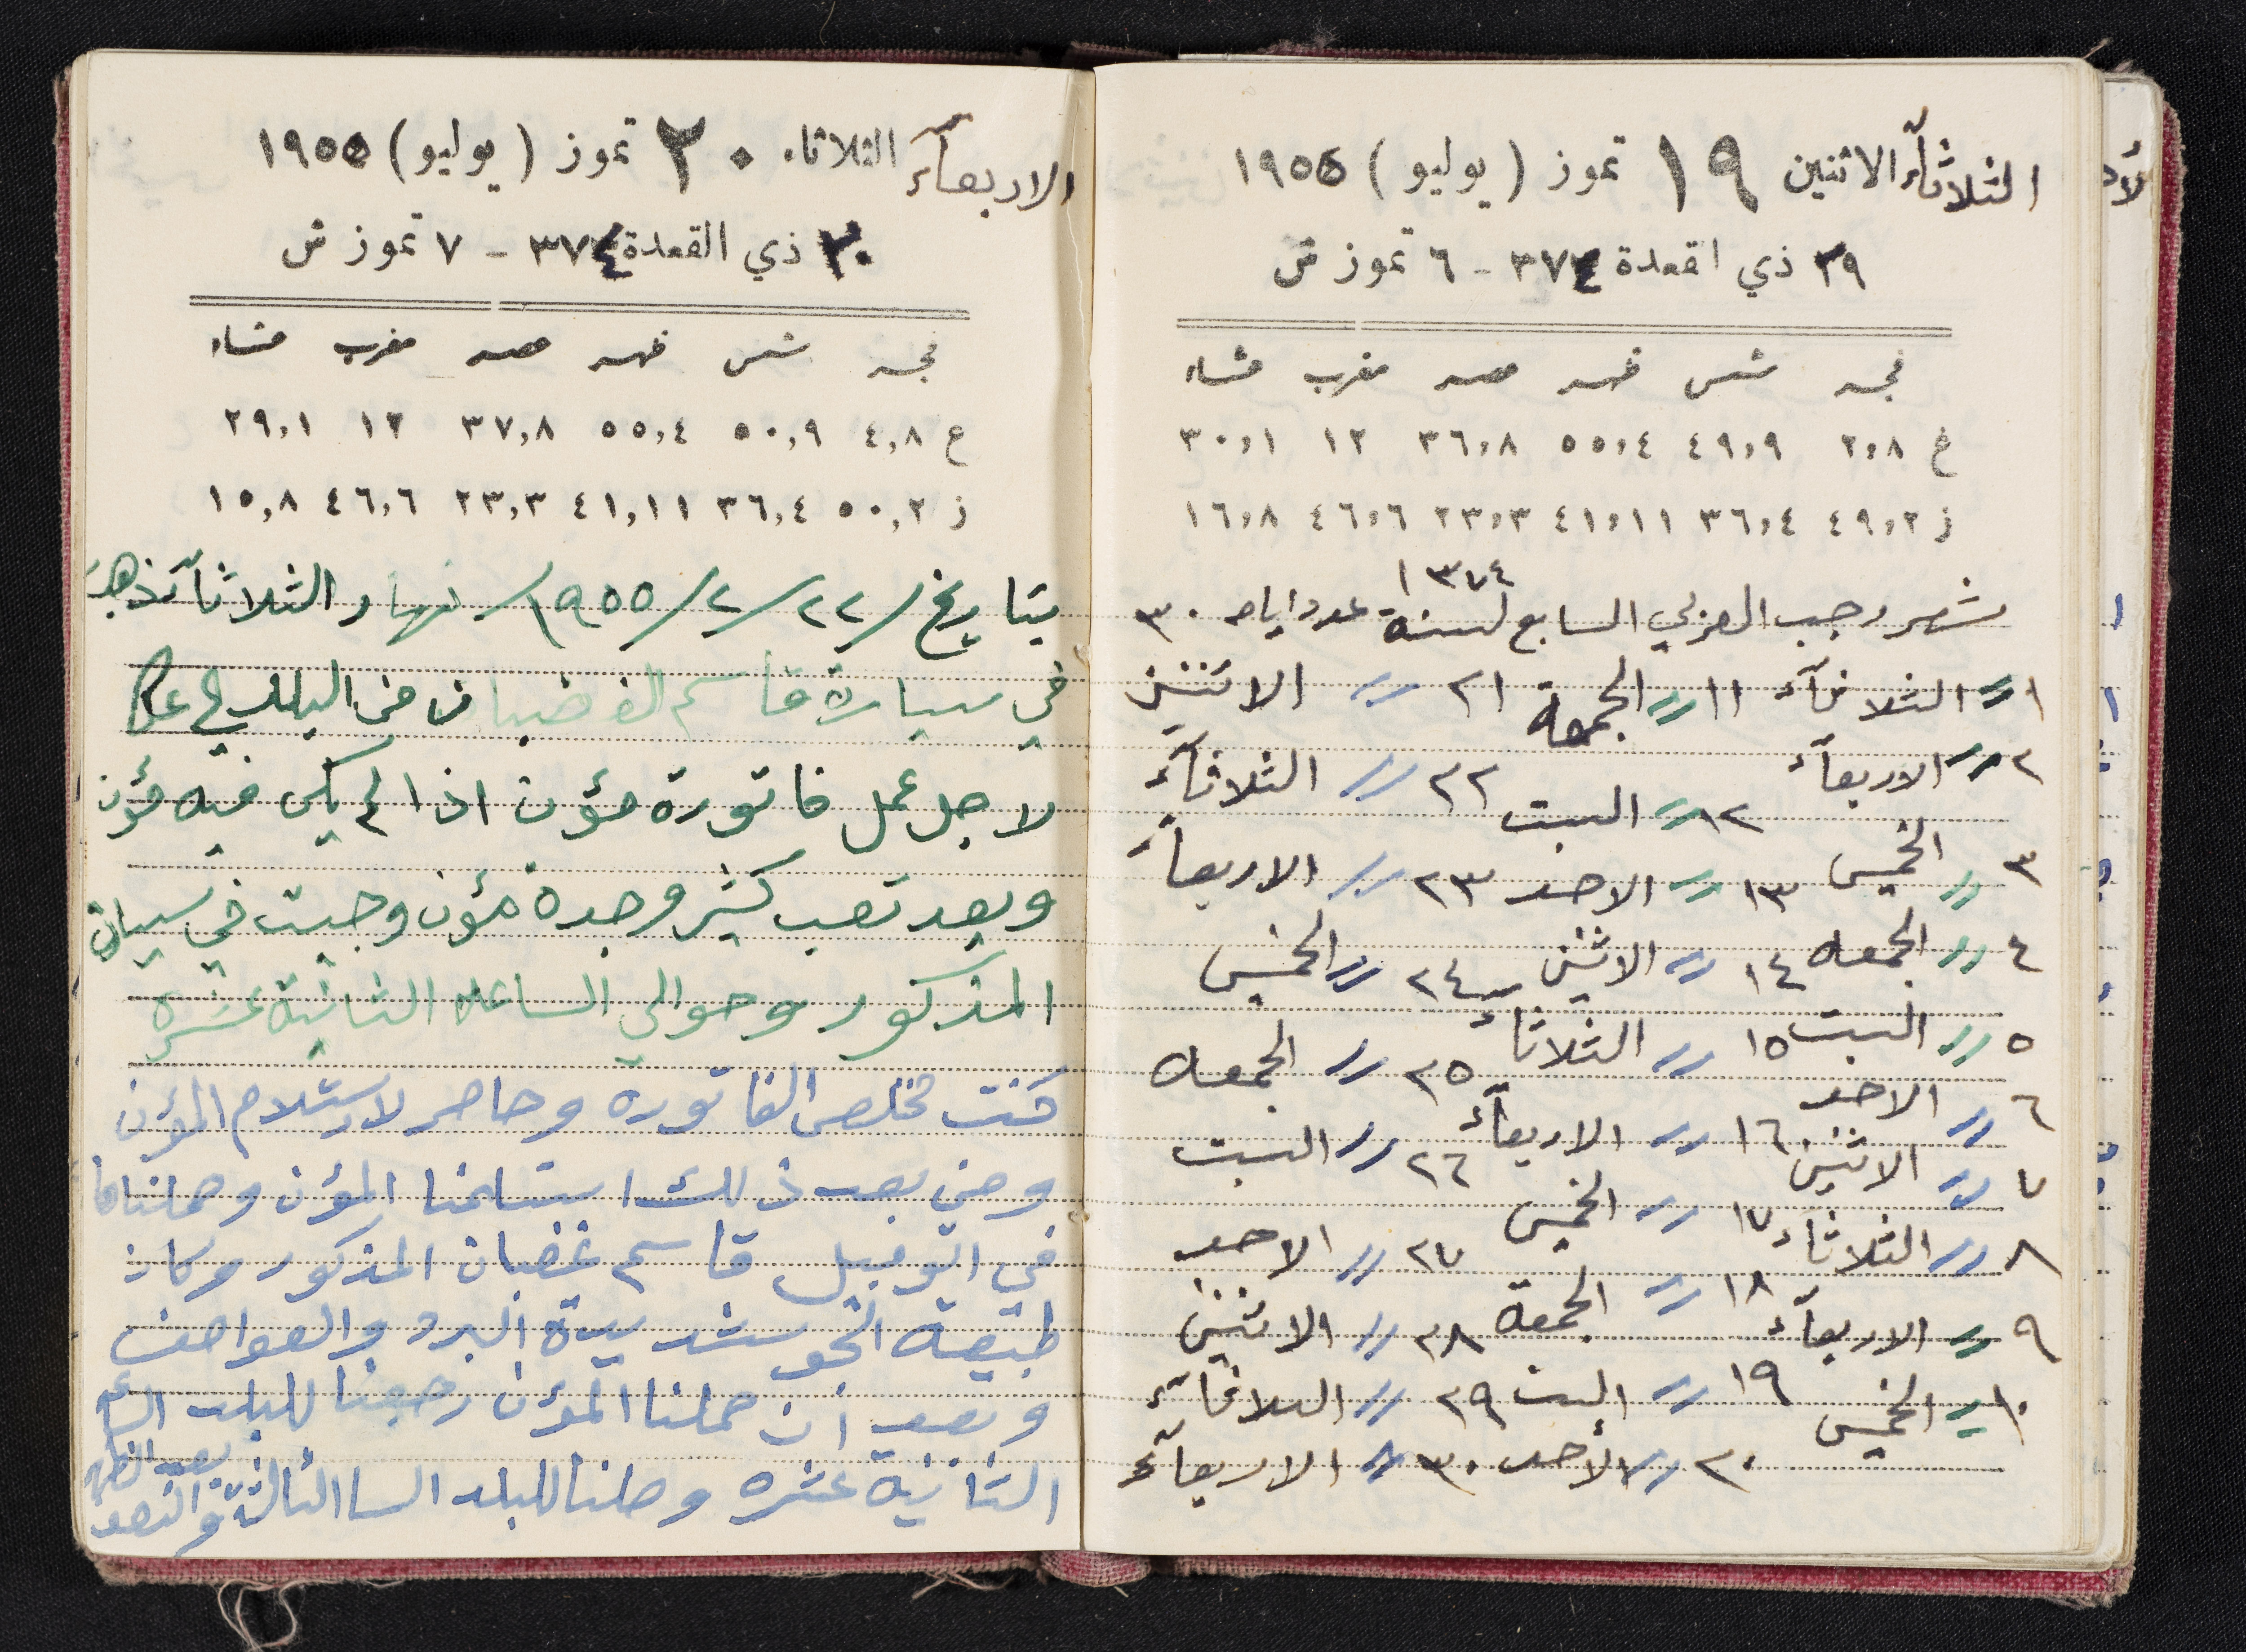 الثلاثآء الاثنين ١٩ تموز (يوليو) ١٩٥٥
٢٩ ذي القعدة ٣٧٤ - ٦ تموز ش
فجر شمس ظهر عصر مغرب عشاء
غ ٢,٨ ٤٩,٩ ٥٥,٤ ٣٦,٨ ١٢ ٣٠,١
ز ٤٩,٢ ٣٦,٤ ٤١,١١ ٢٣,٣ ٤٦,٦ ١٦,٨
شهر رجب العربي السابع لسنة ١٣٧٤ عدد ايامه ٣٠
١ // الثلاثآء ١١ // الجمعة ٢١ // الاثنين
٢ // الاربعآء ١٢ // السبت ٢٢ // الثلاثآء
٣ // الخميس ١٣ // الاحد ٢٣ // الاربعآء
٤ // الجمعه ١٤ // الاثنين ٢٤ // الخميس
٥ // السبت ١٥ // الثلاثاء ٢٥ // الجمعه
٦ // الاحد ١٦ // الاربعآء ٢٦ // السبت
٧ // الاثنين ١٧ // الخميس ٢٧ // الاحد
٨ // الثلاثاء ١٨ // الجمعة ٢٨ // الاثنين
٩ // الاربعآء ١٩ // السبت ٢٩ // الثلاثآء
١٠ // الخميس ٢٠ // الأحد ٣٠ // الاربعآء
الاربعآء الثلاثاء ٢٠ تموز (يوليو) ١٩٥٥
٣٠ ذي القعدة ٣٧٤ - ٧ تموز ش
فجر شمس ظهر عصر مغرب عشاء
ع ٤,٨ ٥٠,٩ ٥٥,٤ ٣٧,٨ ١٢ ٢٩,١
ز ٥٠,٢ ٣٦,٤ ٤١,١١ ٢٣,٣ ٤٦,٦ ١٥,٨
بتاريخ /٢٢/٢/١٩٥٥/ نهار الثلاثآء ذهبة
في سيارة قاسم الغضبان من البلد الى عكا
لاجل عمل فاتورة مؤن اذا لم يكن فيه مؤن
وبعد تعب كثير وجدة مؤن وجيت في سيارة
المذكور وحوالي الساعه الثانية عشره
كنت مخلص الفاتوره وحاصر لاستلام المؤن
ومن بعد ذلك استلمنا المؤن وحملناها
في اتومبيل قاسم غضبان المذكور وكان
طبيعة الجو شديدة البرد والعواصف
وبعد ان حملنا المؤن رجعنا للبلد الساعه
الثانية عشره وصلنا للبلد السا الثالثة والنصف بعد الظهر